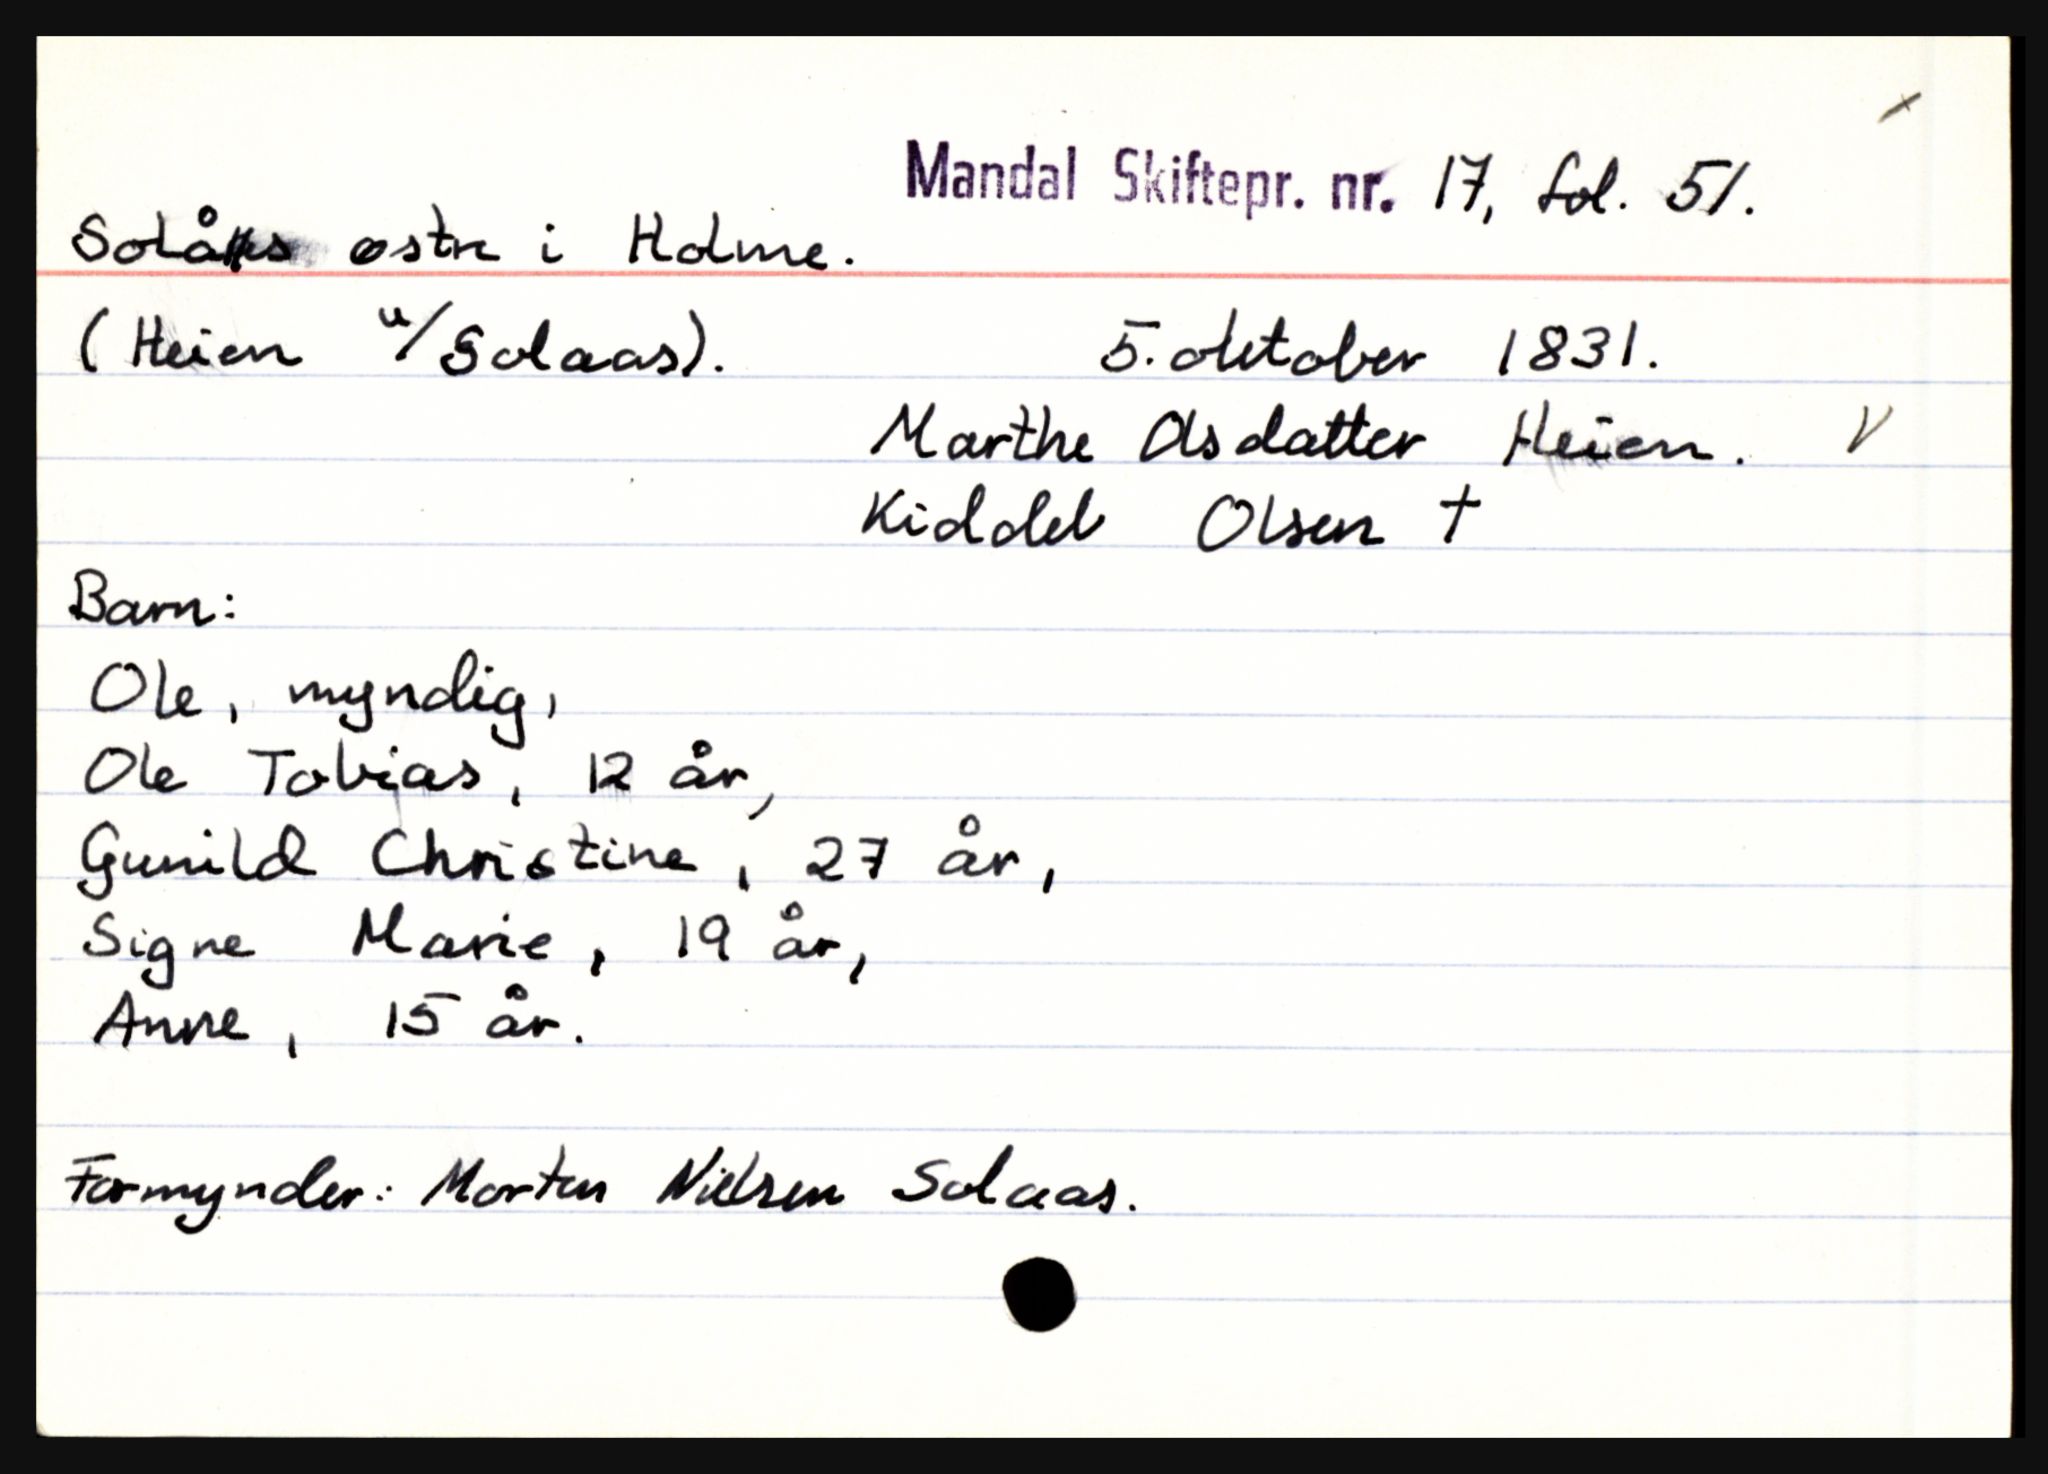 Mandal Skiftepr. nr. 17, fol. 51.
Solås østre i Holme.
(Heien u/Solaas). 5. oktober 1831.
Marthe Olsdatter Heien. V
Kiddel Olsen †
Barn:
Ole, myndig,
Ole Tobias, 12 år,
Gunild Christine, 27 år,
Signe Marie, 19 år,
Anne, 15 år.
Formynder: Morten Nielsen Solaas.